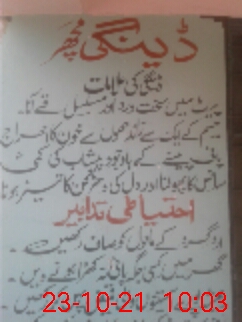 ڈینگی مچھر
ڈینگی کی علامات
پیٹ میں سخت درد اور مسلسل قے آنا۔
جسم کے ایک سے زائد حصوں سے خون کا اخراج
پانی پینے کے باوجود پیشاب کی کمی
سانس کا پھولنا اور دل کی دھڑکن کا تیز ہونا
احتیاطی تدابیر
اردگرد کے ماحول کو صاف رکھیں۔
گھر میں کسی جگہ پانی نہ کھڑا ہونے دیں۔
23-10-21 10:03